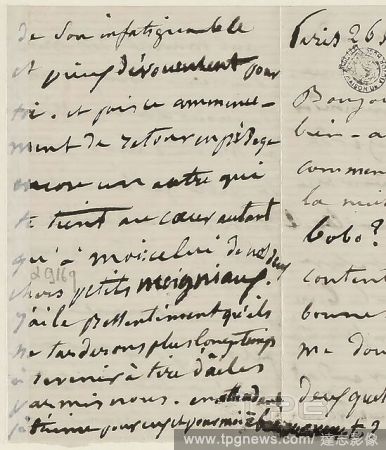 de son infatiguable
et pieux dévouement pour
toi. et puis ce commence-
ment de retour en présage
encore un autre qui
te tient au cœur autant
qu'à moi celui de nos deux
chers petits moigniaux
j'ai le pressentiment qu'ils
ne tarderons plus longtemps
à revenir à tire d'ailes
parmis nous. en attendant
29169
Paris 26
Bonjou
bien-a
commen
la nu
bobo?
conten
bonne
me dou
www.tpgnews.com
達志影像